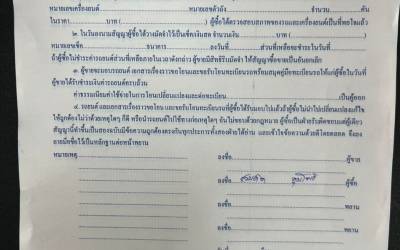 หมายเลขเครื่องยนต์ หมายเลขตัวถัง จำนวน คัน
ในราคา บาท ( ) ผู้ซื้อได้ตรวจสอบสภาพของรถและเครื่องยนต์เป็นที่พอใจแล้ว
๒. ในวันลงนามสัญญาผู้ซื้อได้วางมัดจำไว้เป็นเช็คเงินสด จำนวนเงิน บาท ( )
หมายเลขเช็ค ธนาคาร ลงวันที่ ส่วนที่เหลือจะชำระในวันที่
ถ้าผู้ซื้อไม่ชำระค่ารถยนต์ส่วนที่เหลือภายในเวลาดังกล่าว ผู้ขายมีสิทธิริบมัดจำ ให้สัญญาซื้อขายเป็นอันยกเลิก
๓. ผู้ขายจะมอบรถยนต์ เอกสารเรื่องราวขอโอนและขอรับโอนทะเบียนรถพร้อมสมุดคู่มือทะเบียนรถให้แก่ผู้ซื้อในวันที่
ผู้ขายได้รับชำระเงินค่ารถยนต์ครบถ้วน
ค่าธรรมเนียมค่าใช้จ่ายในการโอนเปลี่ยนแปลงและต่อทะเบียน เป็นผู้ออก
๔. รถยนต์ และเอกสารเรื่องราวขอโอน และขอรับโอนทะเบียนรถที่ผู้ซื้อได้รับมอบไปแล้วถ้าผู้ซื้อไม่นำไปเปลี่ยนแปลงแก้ไข
ให้ถูกต้องไม่ว่าด้วยเหตุใดๆ ก็ดี หรือนำรถยนต์ไปใช้ทางก่อเหตุใดๆ อันไม่ชอบด้วยกฎหมาย ผู้ซื้อเป็นฝ่ายรับผิดชอบแต่ผู้เดียว
สัญญานี้ทำขึ้นเป็นสองฉบับมีข้อความถูกต้องตรงกันทุกประการทั้งสองฝ่ายได้อ่าน และเข้าใจข้อความด้วยดีโดยตลอด จึงลง
ลายมือชื่อไว้เป็นหลักฐานต่อหน้าพยาน
หมายเหตุ ลงชื่อ ผู้ขาย
ลงชื่อ ผู้ซื้อ
ลงชื่อ พยาน
ลงชื่อ พยาน